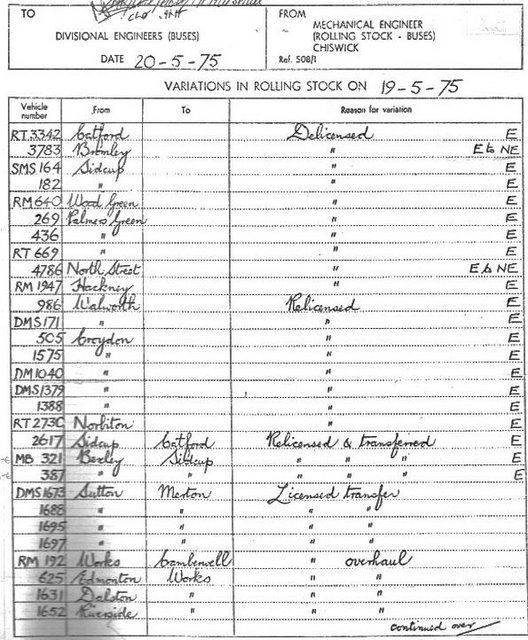 TO
DIVISIONAL ENGINEERS (BUSES)
DATE 20-5-75
FROM
MECHANICAL ENGINEER
(ROLLING STOCK - BUSES)
CHISWICK
Ref. 508/1
VARIATIONS IN ROLLING STOCK ON 19-5-75
Vehicle number From To Reason for variation
RT 3342 Catford Delicensed E
3783 Bromley " E to NE
SMS 164 Sidcup " E
182 " " E
RM 640 Wood Green " E
269 Palmers Green " E
436 " " E
RT 669 " " E
4786 North Street " E to NE
RM 1947 Hackney " E
986 Walworth Relicensed E
DMS 171 " " E
505 Croydon " E
1575 " " E
DM 1040 " " E
DMS 1379 " " E
1388 " " E
RT 2730 Norbiton " E
2617 Sidcup Catford Relicensed & transferred E
MB 321 Bexley Sidcup " " " E
387 " " " " " E
DMS 1673 Sutton Merton Licensed transfer
1688 " " " "
1695 " " " "
1697 " " " "
RM 192 Works Camberwell " overhaul
625 Edmonton Works " "
1631 Dalston " " "
1652 Riverside " " "
continued over